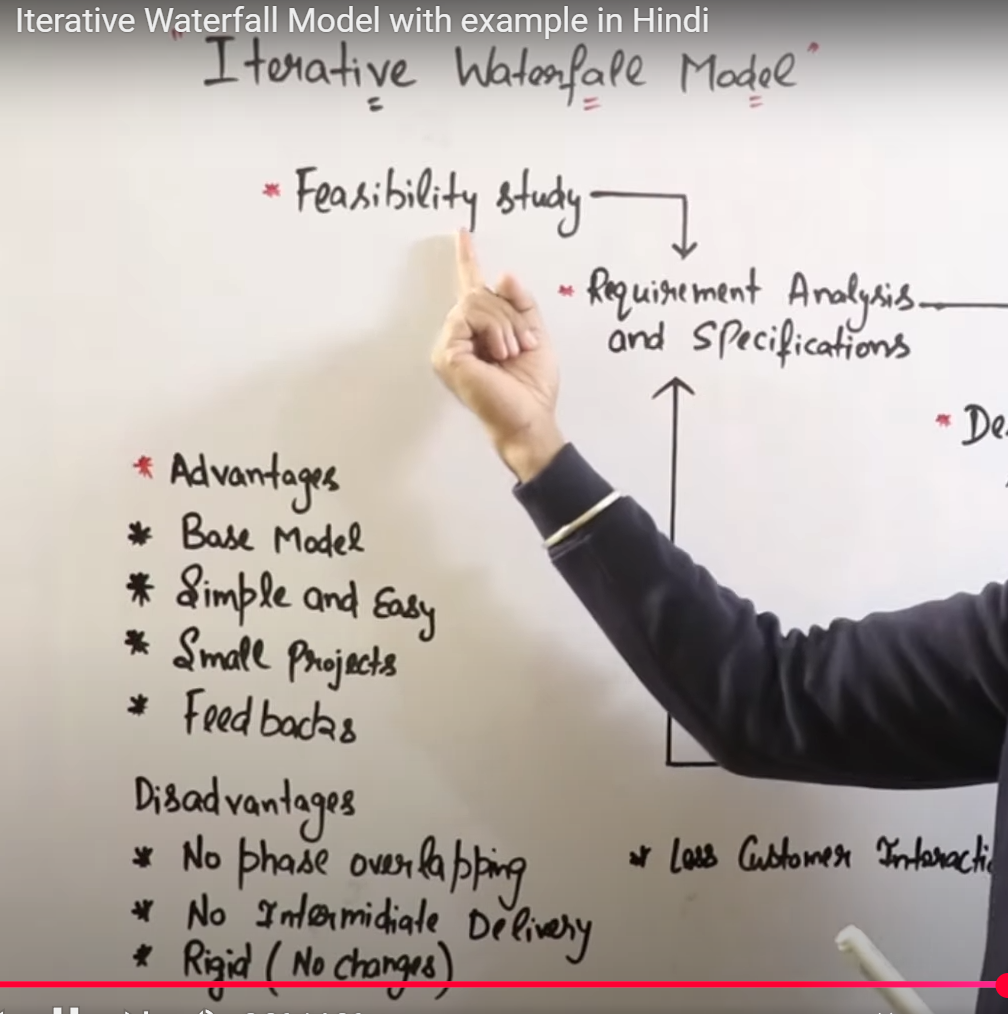 Iterative Waterfall Model with example in Hindi
"Iterative Waterfall Model"
* Feasibility study
* Requirement Analysis
and Specifications
* De
* Advantages
* Base Model
* Simple and Easy
* Small Projects
* Feedbacks
Disadvantages
* No phase overlapping
* No Intermidiate Delivery
* Rigid (No changes)
* Less Customer Interacti